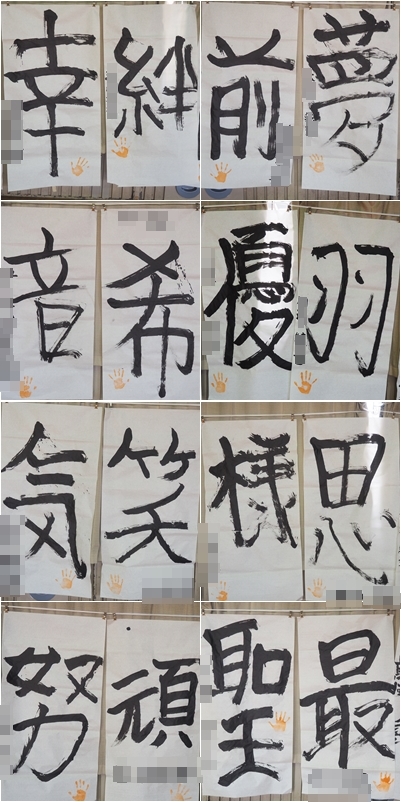 幸 絆 前 夢
音 希 優 羽
気 笑 様 思
努 頑 聖 最